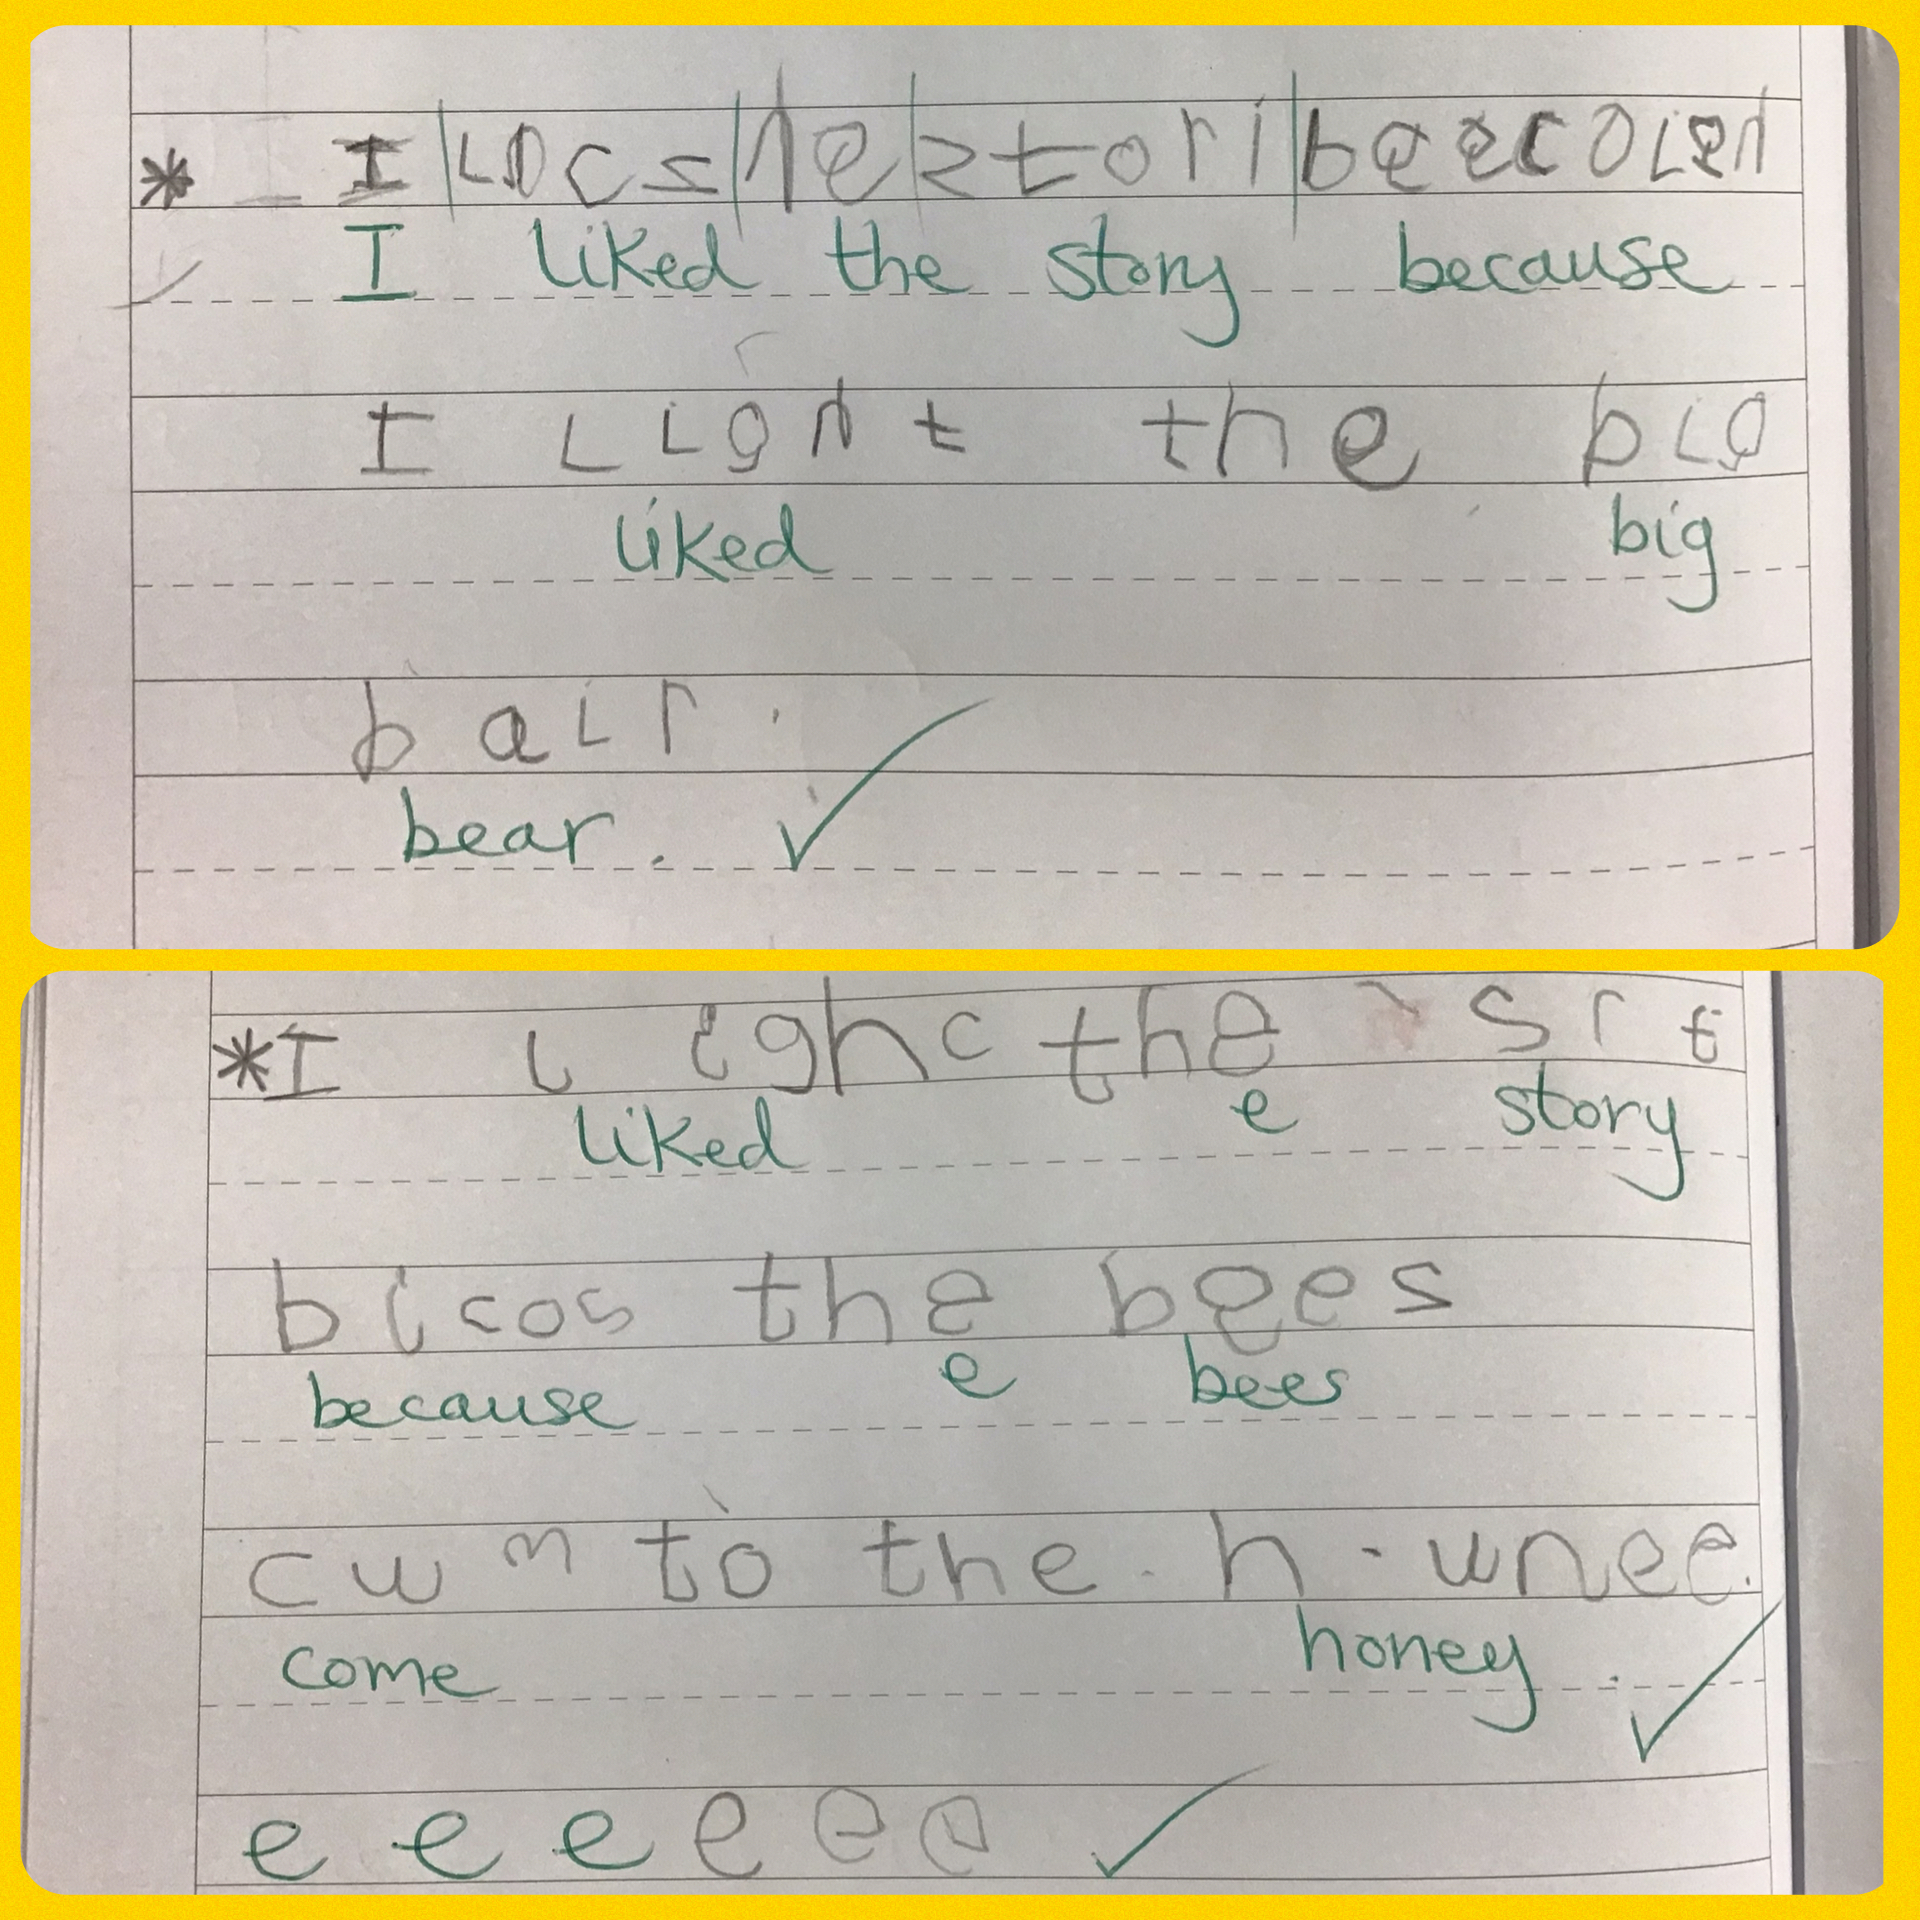 * I LDCs he ztori beecoLen
I liked the story because
I LLght the big
liked big
baLr.
bear.
*I lighc the srt
liked e story
bicos the bees
because e bees
cum to the h.unee.
come honey.
e e e e e e